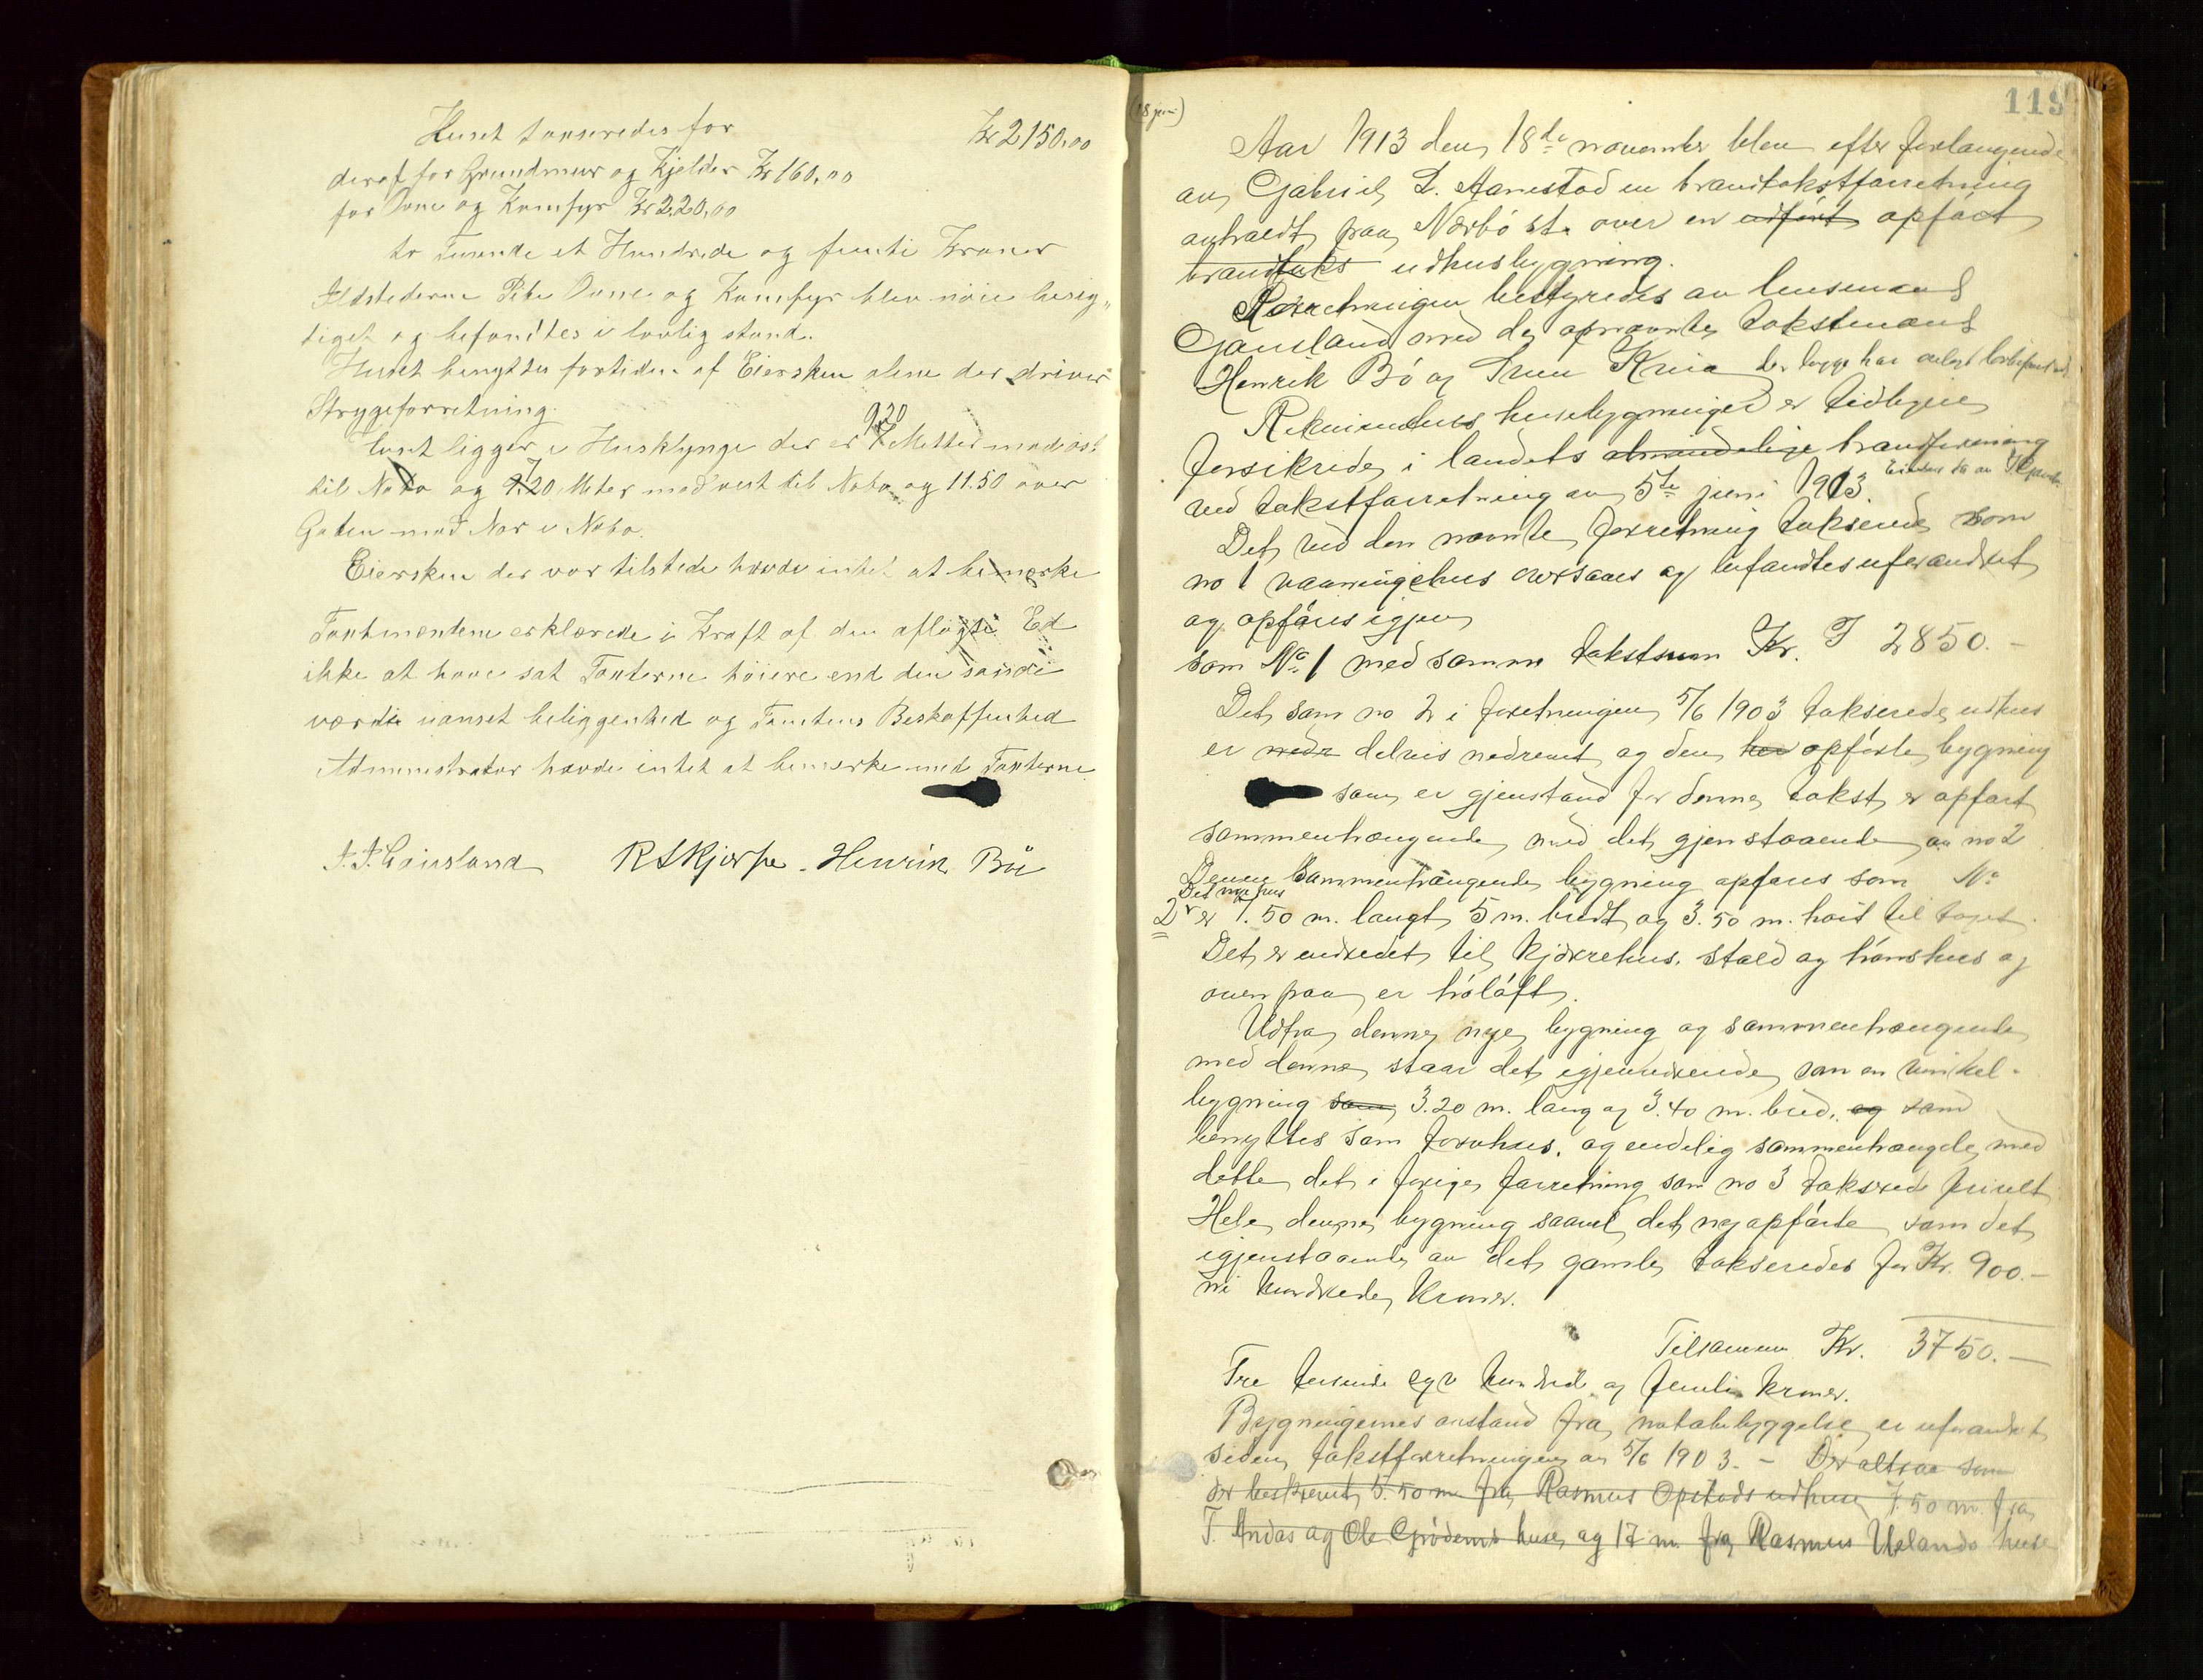 Huset taxeredes for Kr 2150,00
deraf for Grundmur og Kjelder Kr 160,00
for Ovne og Komfyr Kr 220,00
to Tusende et Hundrede og femti Kroner
Ildstederne Pibe Ovne og Komfyr blev nöie besig„
tiget og befandtes i lovlig stand.
Huset benyttes fortiden af Eiersken alene der driver
Strygeforretning.
9,20
Huset ligger i Husklynge der er 7 Metter mod öst
til Nabo og 9.20 Meter mod vest til Nabo og 11.50 over
Gaten mod Nor i Nabo.
Eiersken der var tilstede havde intet at bemærke
Taxtmændene erklærede i Kraft af den aflagte Ed
ikke at have sat Taxterne höiere end den sande
værdi uanset beliggenhed og Tomtens Beskaffenhed
Administrator havde intet at bemerke med Taxterne
J. J. Gausland R S Kjorpe. Henrik Bö
119
(18 juni)
Aar 1913 den 18de november blev efter forlangende
av Gabriel L. Aanestad en brandtakstforretning
avholdt paa Nærbö st. over en udfört opfört
brandtaks udhusbygning.
Forretningen bestyredes av lensmand
Gausland med de opnævnte takstmænd
Henrik Bö og Sven Kvia der begge har avlagt
Rekvirentens husebygninger er tidligere
forsikrede i landets almindelige brandforsikring
ved takstforretning av 5te juni 1913.
Det ved den nævnte forretning takserede som
no 1 vaaningshus oversaaes og befandtes uforandret
og opföres igjen
som No 1 med samme takstsum Kr. 2850.-
Det som no 2 i forretningen 5/6 1903 takserede udhus
er nedr delvis nedrevet og den her opförte bygning
som er gjenstand for denne takst er opfört
sammenhængende med det gjenstaaende av no 2
Denne sammenhængende bygning opföres som No
Det nye hus
2 er 7.50 m. langt 5 m. bredt og 3.50 m. höit til taget.
Det er indredet til kjörrehus, stald og hönshus og
ovenpaa er höloft.
Udfra denne nye bygning og sammenhængende
med denne staar det igjenværende som en vinkel-
bygning som 3.20 m. lang og 3.40 m. bred, og som
benyttes som torvhus, og endelig sammenhængde med
dette det i forige forretning som no 3 takserede
Hele denne bygning saavel det nyopförte som det
igjenstaaende av det gamle takseredes for Kr. 900.-
ni hundrede kroner.
Tilsammen Kr. 3750.-
Tre tusinde syv hundrede og femti kroner.
Bygningernes avstand fra nabobebyggelse er uforandret
siden takstforretningen av 5/6 1903. - Der altsaa som
der beskrevet 5.50 m fra Rasmus Opstads udhus 7.50 m. fra
T. Andas og Ole Grödems huse og 17 m. fra Rasmus Uelands huse